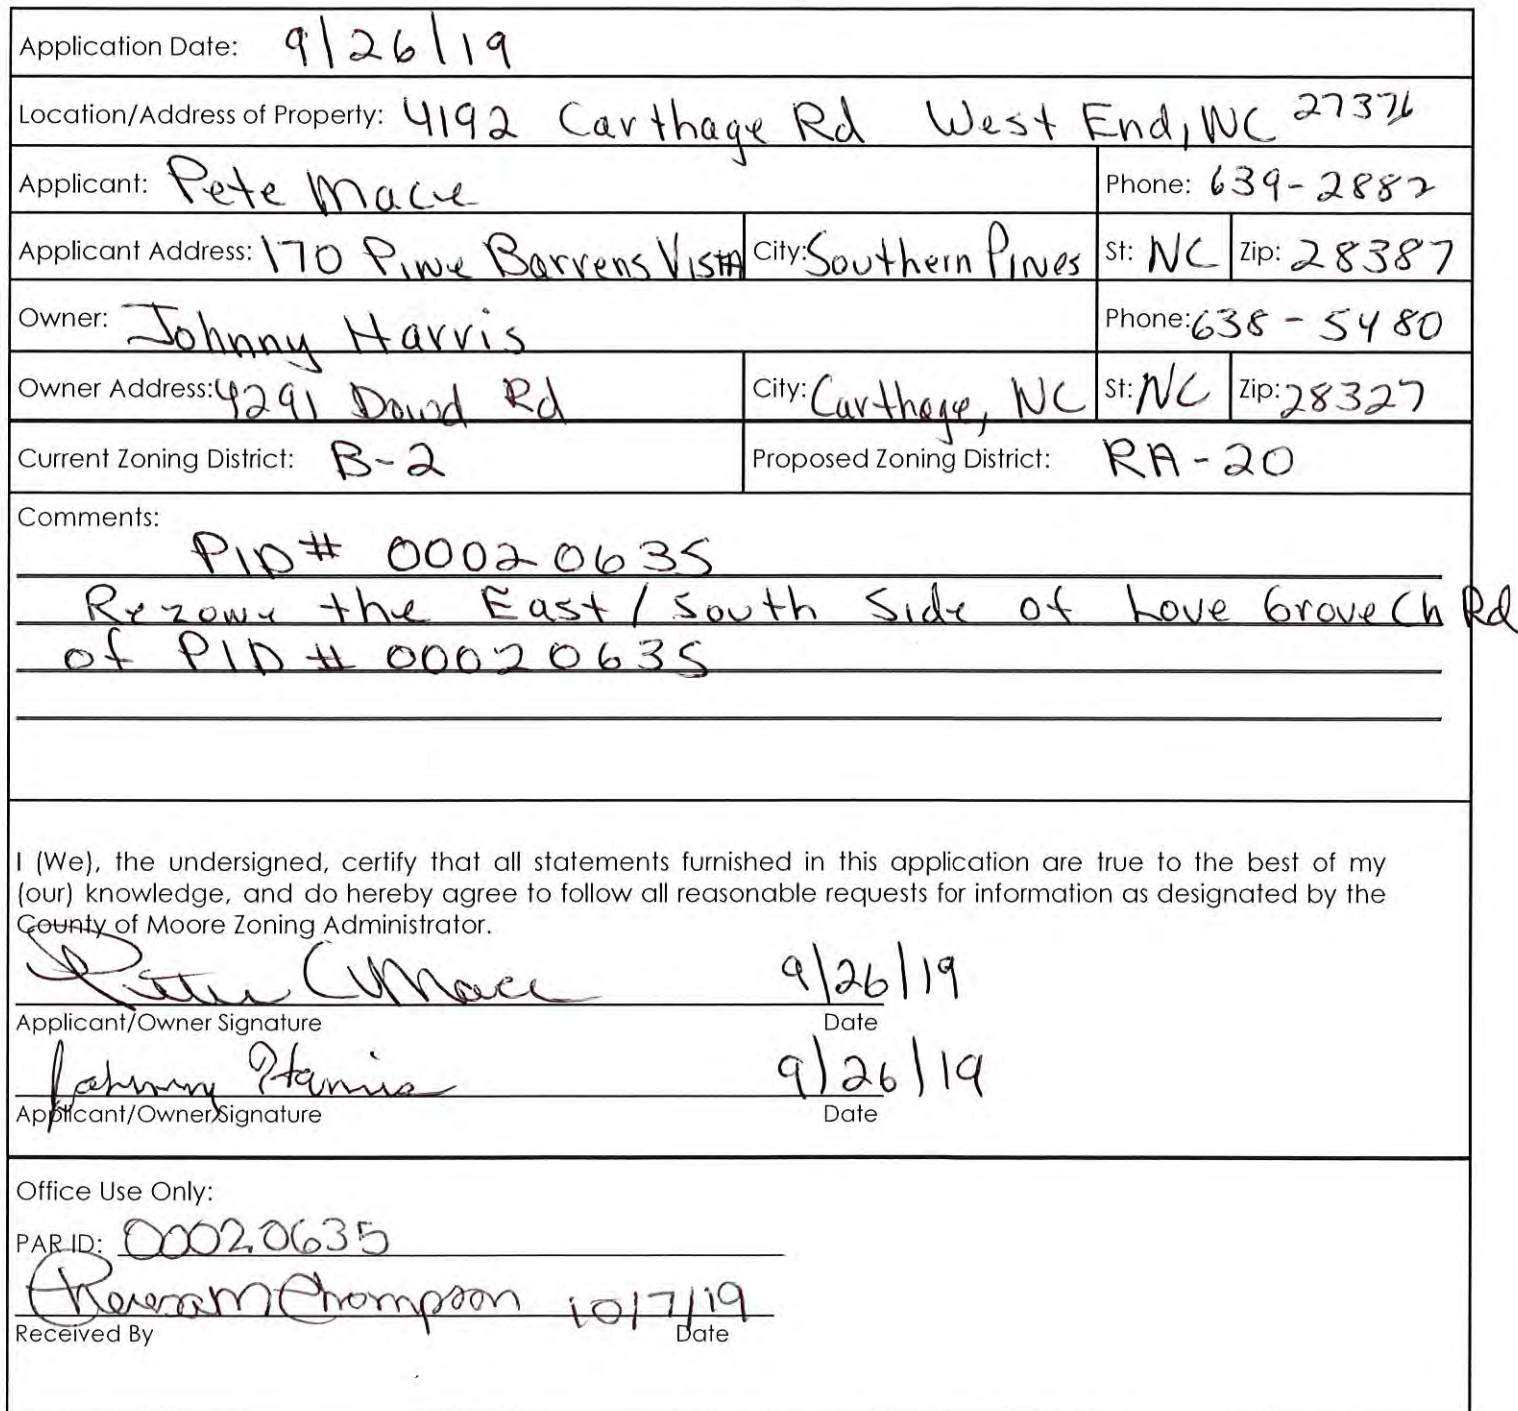 Application Date: 9/26/19
Location/Address of Property: 4192 Carthage Rd West End, NC 27376
Applicant: Pete Mace Phone: 639-2882
Applicant Address: 170 Pine Barrens Vista City: Southern Pines St: NC Zip: 28387
Owner: Johnny Harris Phone: 638-5480
Owner Address: 4291 Dowd Rd City: Carthage, NC St: NC Zip: 28327
Current Zoning District: B-2 Proposed Zoning District: RA-20
Comments:
PID# 00020635
Rezone the East/South Side of Love Grove Ch Rd
of PID# 00020635
I (We), the undersigned, certify that all statements furnished in this application are true to the best of my
(our) knowledge, and do hereby agree to follow all reasonable requests for information as designated by the
County of Moore Zoning Administrator.
Peter C Mace 9/26/19
Applicant/Owner Signature Date
Johnny Harris 9/26/19
Applicant/Owner Signature Date
Office Use Only:
PAR ID: 00020635
Theresa M Thompson 10/7/19
Received By Date